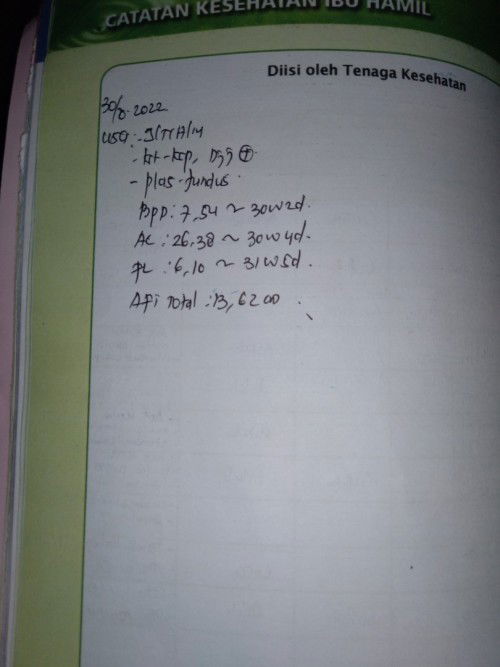 CATATAN KESEHATAN IBU HAMIL
Diisi oleh Tenaga Kesehatan
30/8-2022
USG: J/T/H/IU
- let-kep, DJJ ⊕
- plas-fundus.
BPD: 7,54 ~ 30w2d.
AC: 26,38 ~ 30w4d.
FL: 6,10 ~ 31w5d.
AFI Total: 13,62